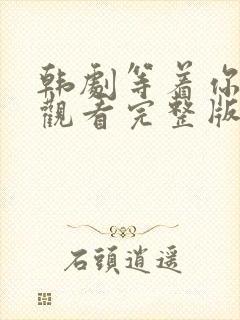 韩劇等着你
觀看完整版
石頭逍遥